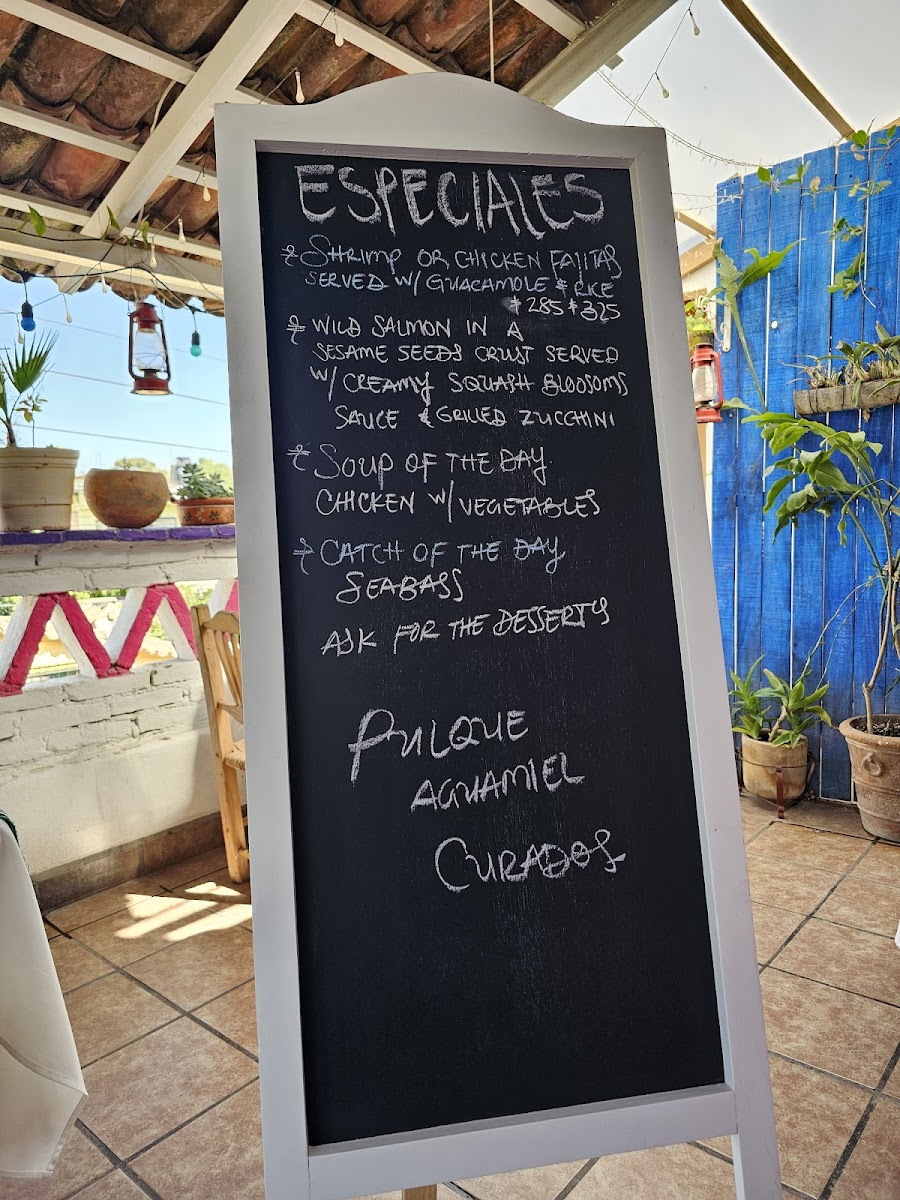 ESPECIALES
* SHRIMP OR CHICKEN FAJITAS
SERVED W/ GUACAMOLE & RICE
$285 $325
* WILD SALMON IN A
SESAME SEEDS CRUST SERVED
W/ CREAMY SQUASH BLOOSOMS
SAUCE & GRILLED ZUCCHINI
* SOUP OF THE DAY
CHICKEN W/ VEGETABLES
* CATCH OF THE DAY
SEABASS
ASK FOR THE DESSERTS
PULQUE
AGUAMIEL
CURADOS